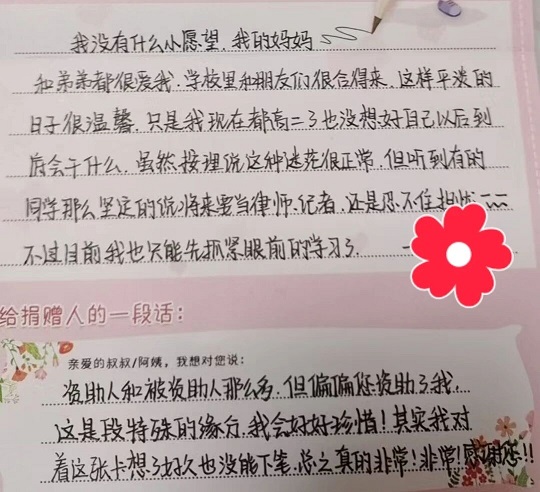 我没有什么小愿望,我的妈妈
和弟弟都很爱我,学校里和朋友们很合得来,这样平淡的
日子很温馨,只是我现在都高二了也没想好自己以后到
底会干什么,虽然按理说这种迷茫很正常,但听到有的
同学那么坚定的说将来要当律师、记者,还是忍不住担忧……
不过目前我也只能先抓紧眼前的学习了.
给捐赠人的一段话:
亲爱的叔叔/阿姨,我想对您说:
资助人和被资助人那么多,但偏偏您资助了我,
这是段特殊的缘分,我会好好珍惜!其实我对
着这张卡想了好久也没能下笔,总之真的非常!非常!感谢您!!